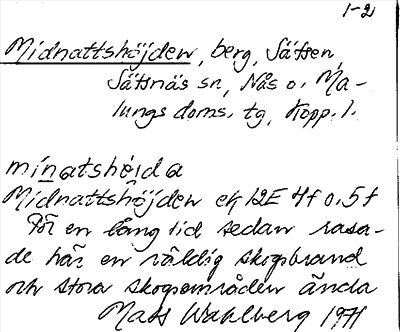 1-2
Midnattshöjden, berg, Sätsen,
Säfsnäs sn, Nås o. Ma-
lungs doms. tg, Kopp. l.
minatshöjda
Midnattshöjden ek 12E 4f o. 5f
För en lång tid sedan rasa-
de här en väldig skogsbrand
och stora skogsområden ända
Mats Wahlberg 1971